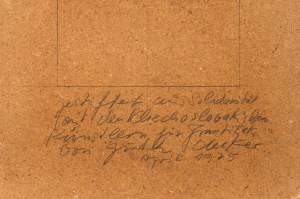 gestiftet aus Solidarität
mit den tschechoslovakischen
Künstlern für František
von Günther Uecker
April 1975